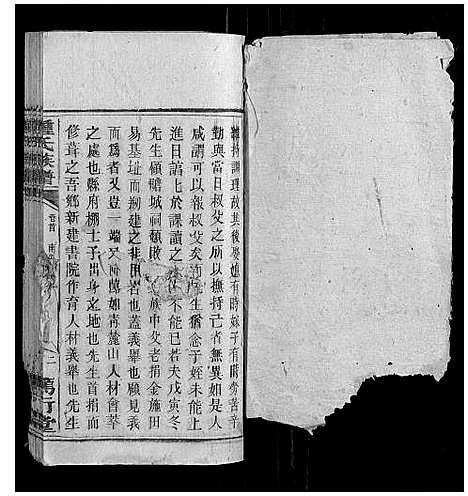 維持調理故其後娶媳有時嫁子有時勞苦辛
勤與當日叔父之所以撫持亡者無異如是人
咸謂可以報叔父矣而先生猶念于姪未能上
進日諮匕於課讀之
不能已若夫戊寅冬
先生傾賠城祠頹敗
族中父老捐金施田
易基址而剏建之非
者也蓋義舉也願見義
而為者又豈一端又
如青麓山人材會萃
之處也縣府棚士子出身之地也先生首捐而
修葺之吾鄉新建書院作育人材義舉也先生
鍾氏族譜
卷首
萬育堂